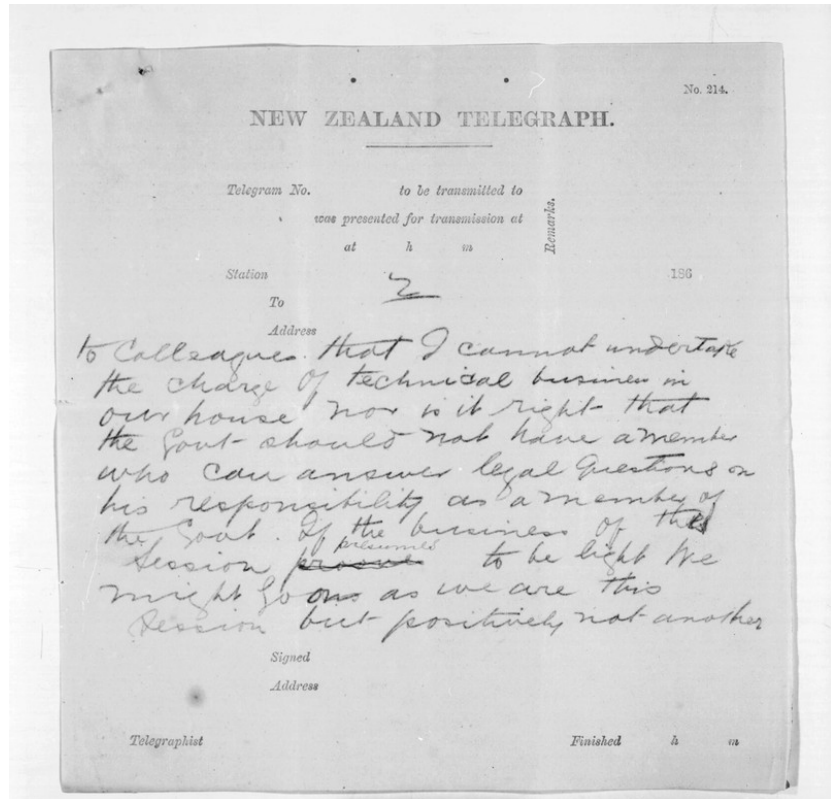 No. 214.
NEW ZEALAND TELEGRAPH.
Telegram No. to be transmitted to
was presented for transmission at
at h m
Remarks.
Station 186
2
To
Address
to Colleagues that I cannot undertake
the charge of technical business in
our house nor is it right that
the Govt should not have a member
who can answer legal questions on
his responsibility as a member of
the Govt. If the business of the
presumes
Session to be light We
might go on as we are this
Session but positively not another
Signed
Address
Telegraphist Finished h m